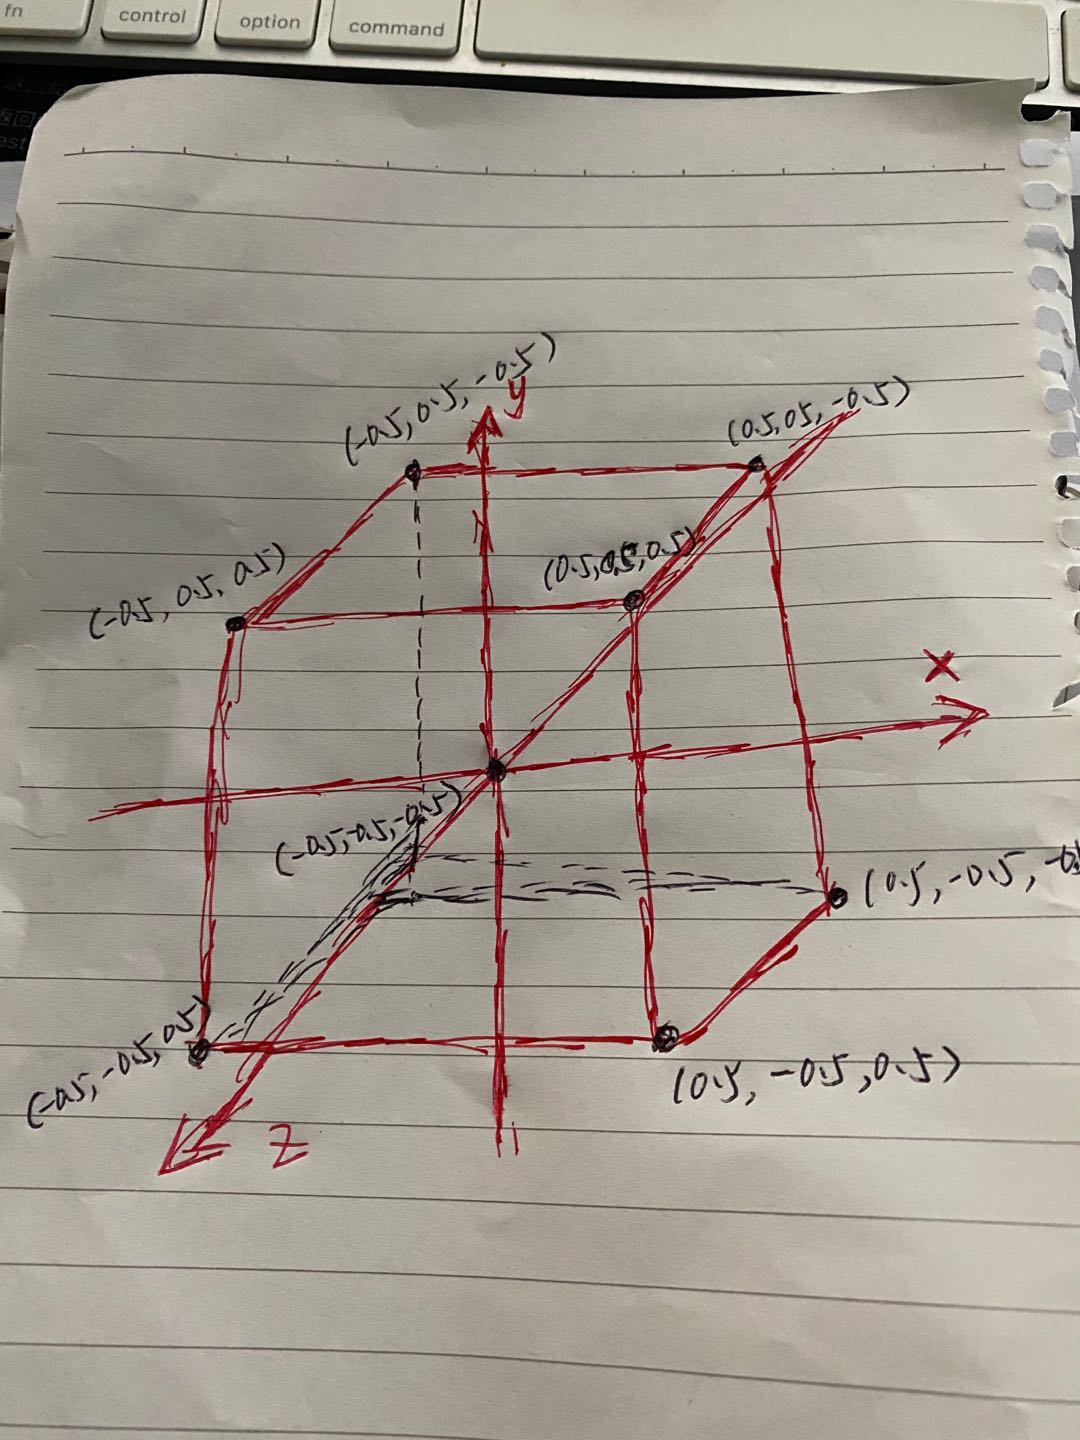 fn
control
option
command
(-0.5, 0.5, -0.5)
y
(0.5, 05, -0.5)
(-0.5, 0.5, 0.5)
(0.5, 0.5, 0.5)
x
(-0.5, -0.5, -0.5)
(0.5, -0.5, -0.
(-0.5, -0.5, 0.5)
(0.5, -0.5, 0.5)
z